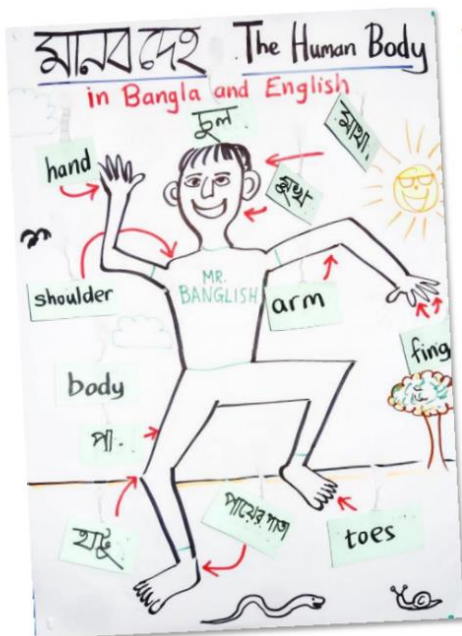 মানব দেহ The Human Body
in Bangla and English
চুল
মাথা
hand
মুখ
shoulder
MR.
BANGLISH
arm
fing
body
পা
হাটু
পায়ের পাতা
toes